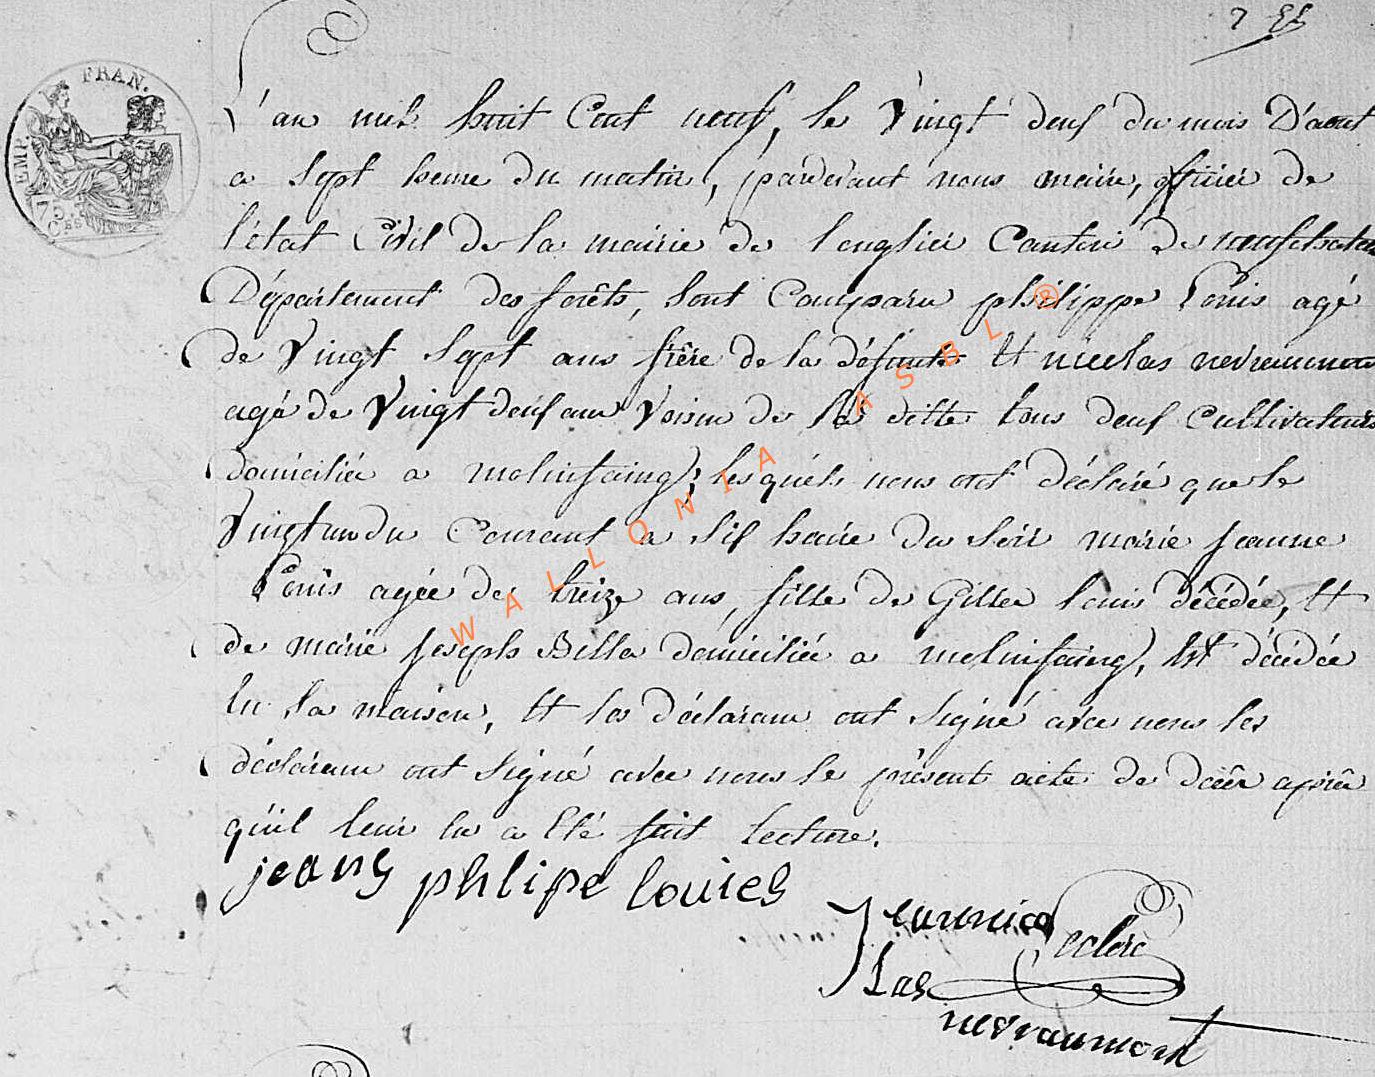 FRAN.
EMP.
75.
CES
L'an mil huit Cent neuf, le Vingt deuf du mois D'aout
a Sept heure du matin, pardevant nous maire, officier de
l'état Civil de la mairie de longlier Canton de neufchateau
Département des forêts, sont Comparu philippe Louis agé
de Vingt Sept ans frère de la défunte Et nicolas nevraumont
agé de Vingt deuf ans Voisin de la ditte tous deuf Cultivateurs
domicilié a molinfaing, lesquels nous ont déclaré que le
Vingt un du Courant a Sif heure du Soir marie jeanne
Louis agée de treize ans, fille de Gille louis décédée, Et
de marie joseph Billa domiciliée a molinfaing, Est décédée
En Sa maison, Et les déclarans ont Signé avec nous les
déclarans ont Signé avec nous le présent acte de décès après
qu'il leur en a Eté fait Lecture.
jeang phlipe louies
Leclere
nevraumont
WALLONIA ASBL ®